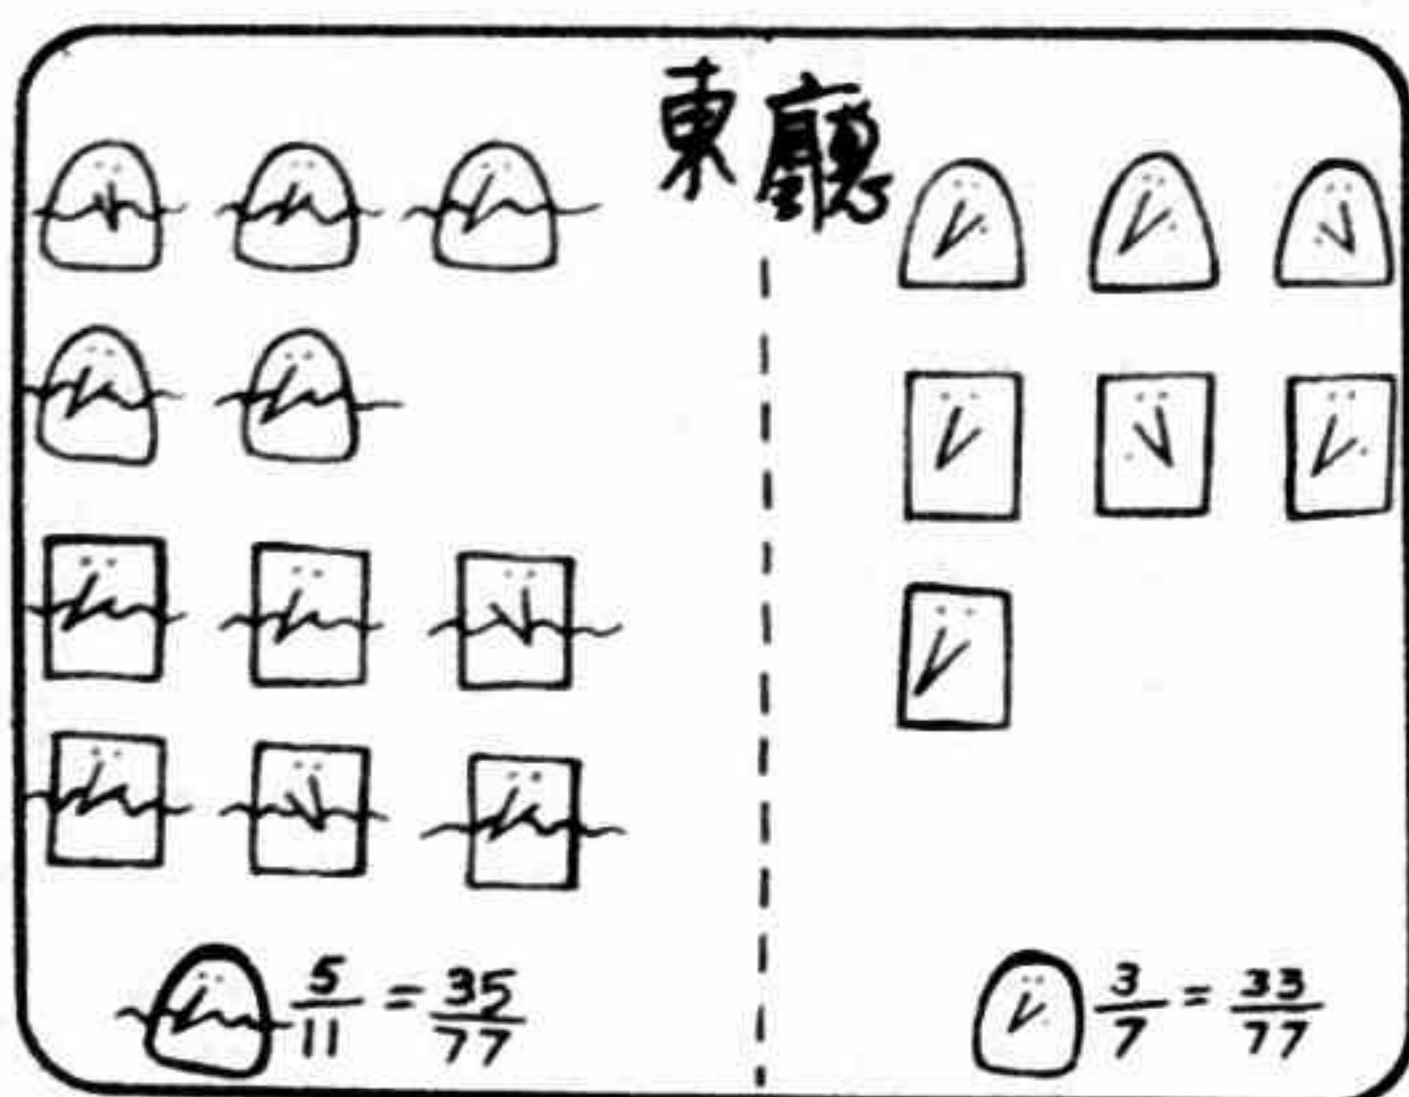 東廳
5/11 = 35/77
3/7 = 33/77